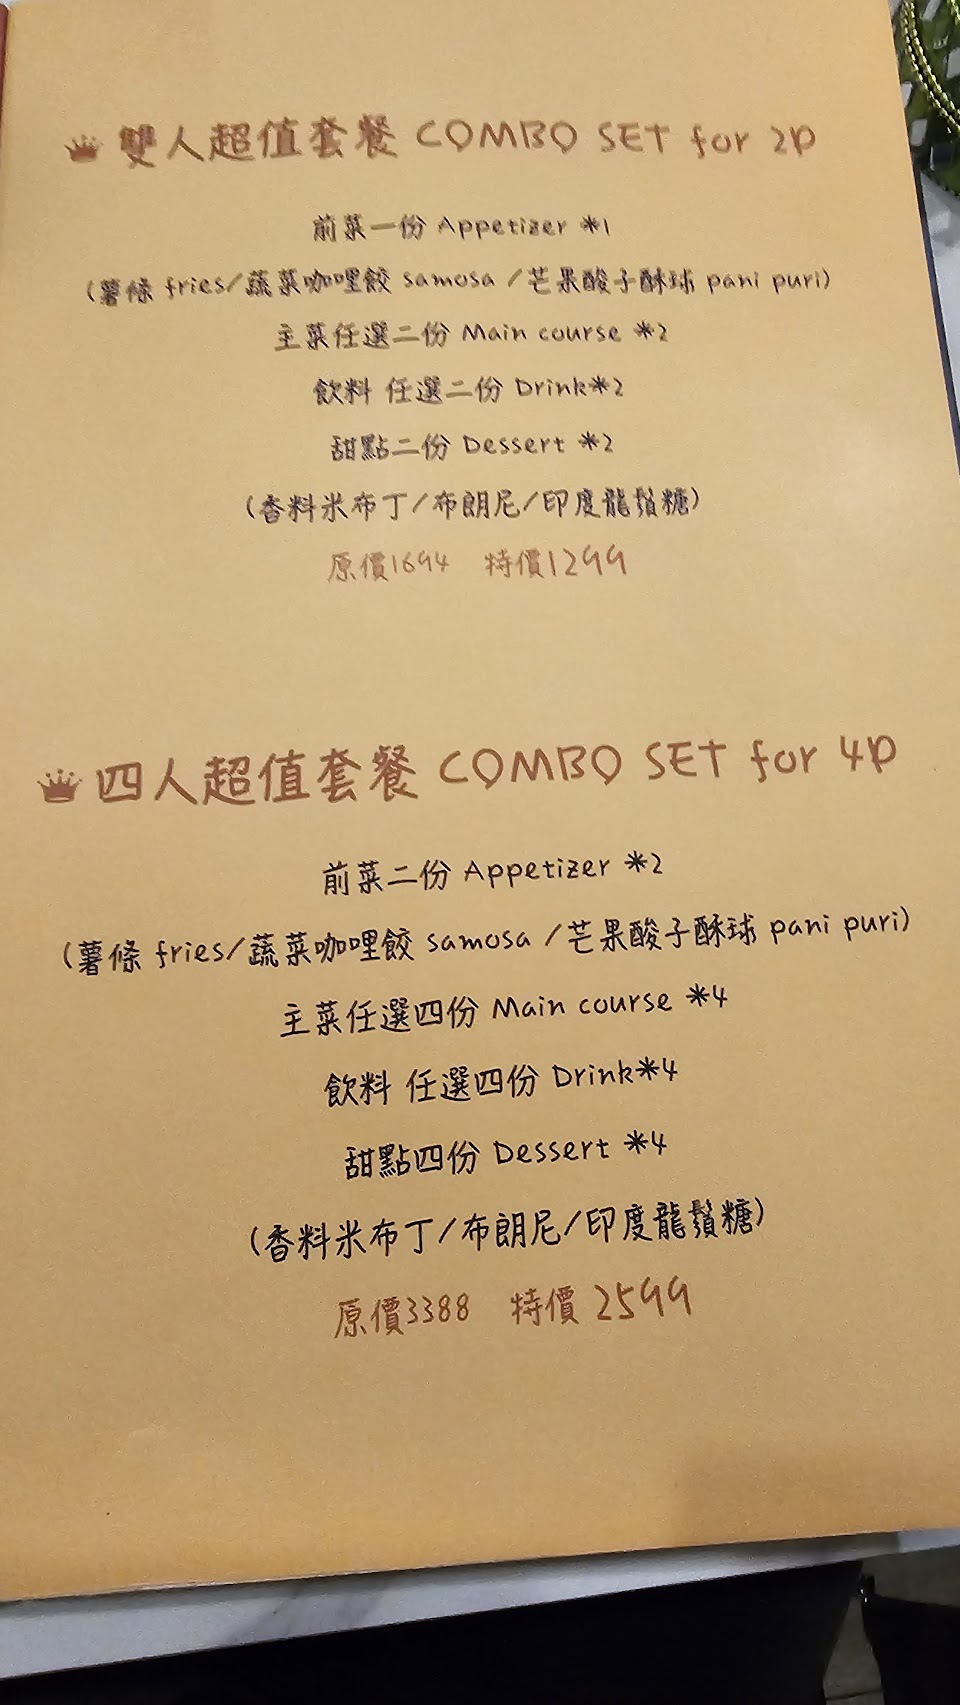 雙人超值套餐 COMBO SET for 2P
前菜一份 Appetizer *1
(薯條 fries/蔬菜咖哩餃 samosa /芒果酸子酥球 pani puri)
主菜任選二份 Main course *2
飲料 任選二份 Drink*2
甜點二份 Dessert *2
(香料米布丁/布朗尼/印度龍鬚糖)
原價1694 特價1299
四人超值套餐 COMBO SET for 4P
前菜二份 Appetizer *2
(薯條 fries/蔬菜咖哩餃 samosa /芒果酸子酥球 pani puri)
主菜任選四份 Main course *4
飲料 任選四份 Drink*4
甜點四份 Dessert *4
(香料米布丁/布朗尼/印度龍鬚糖)
原價3388 特價 2599